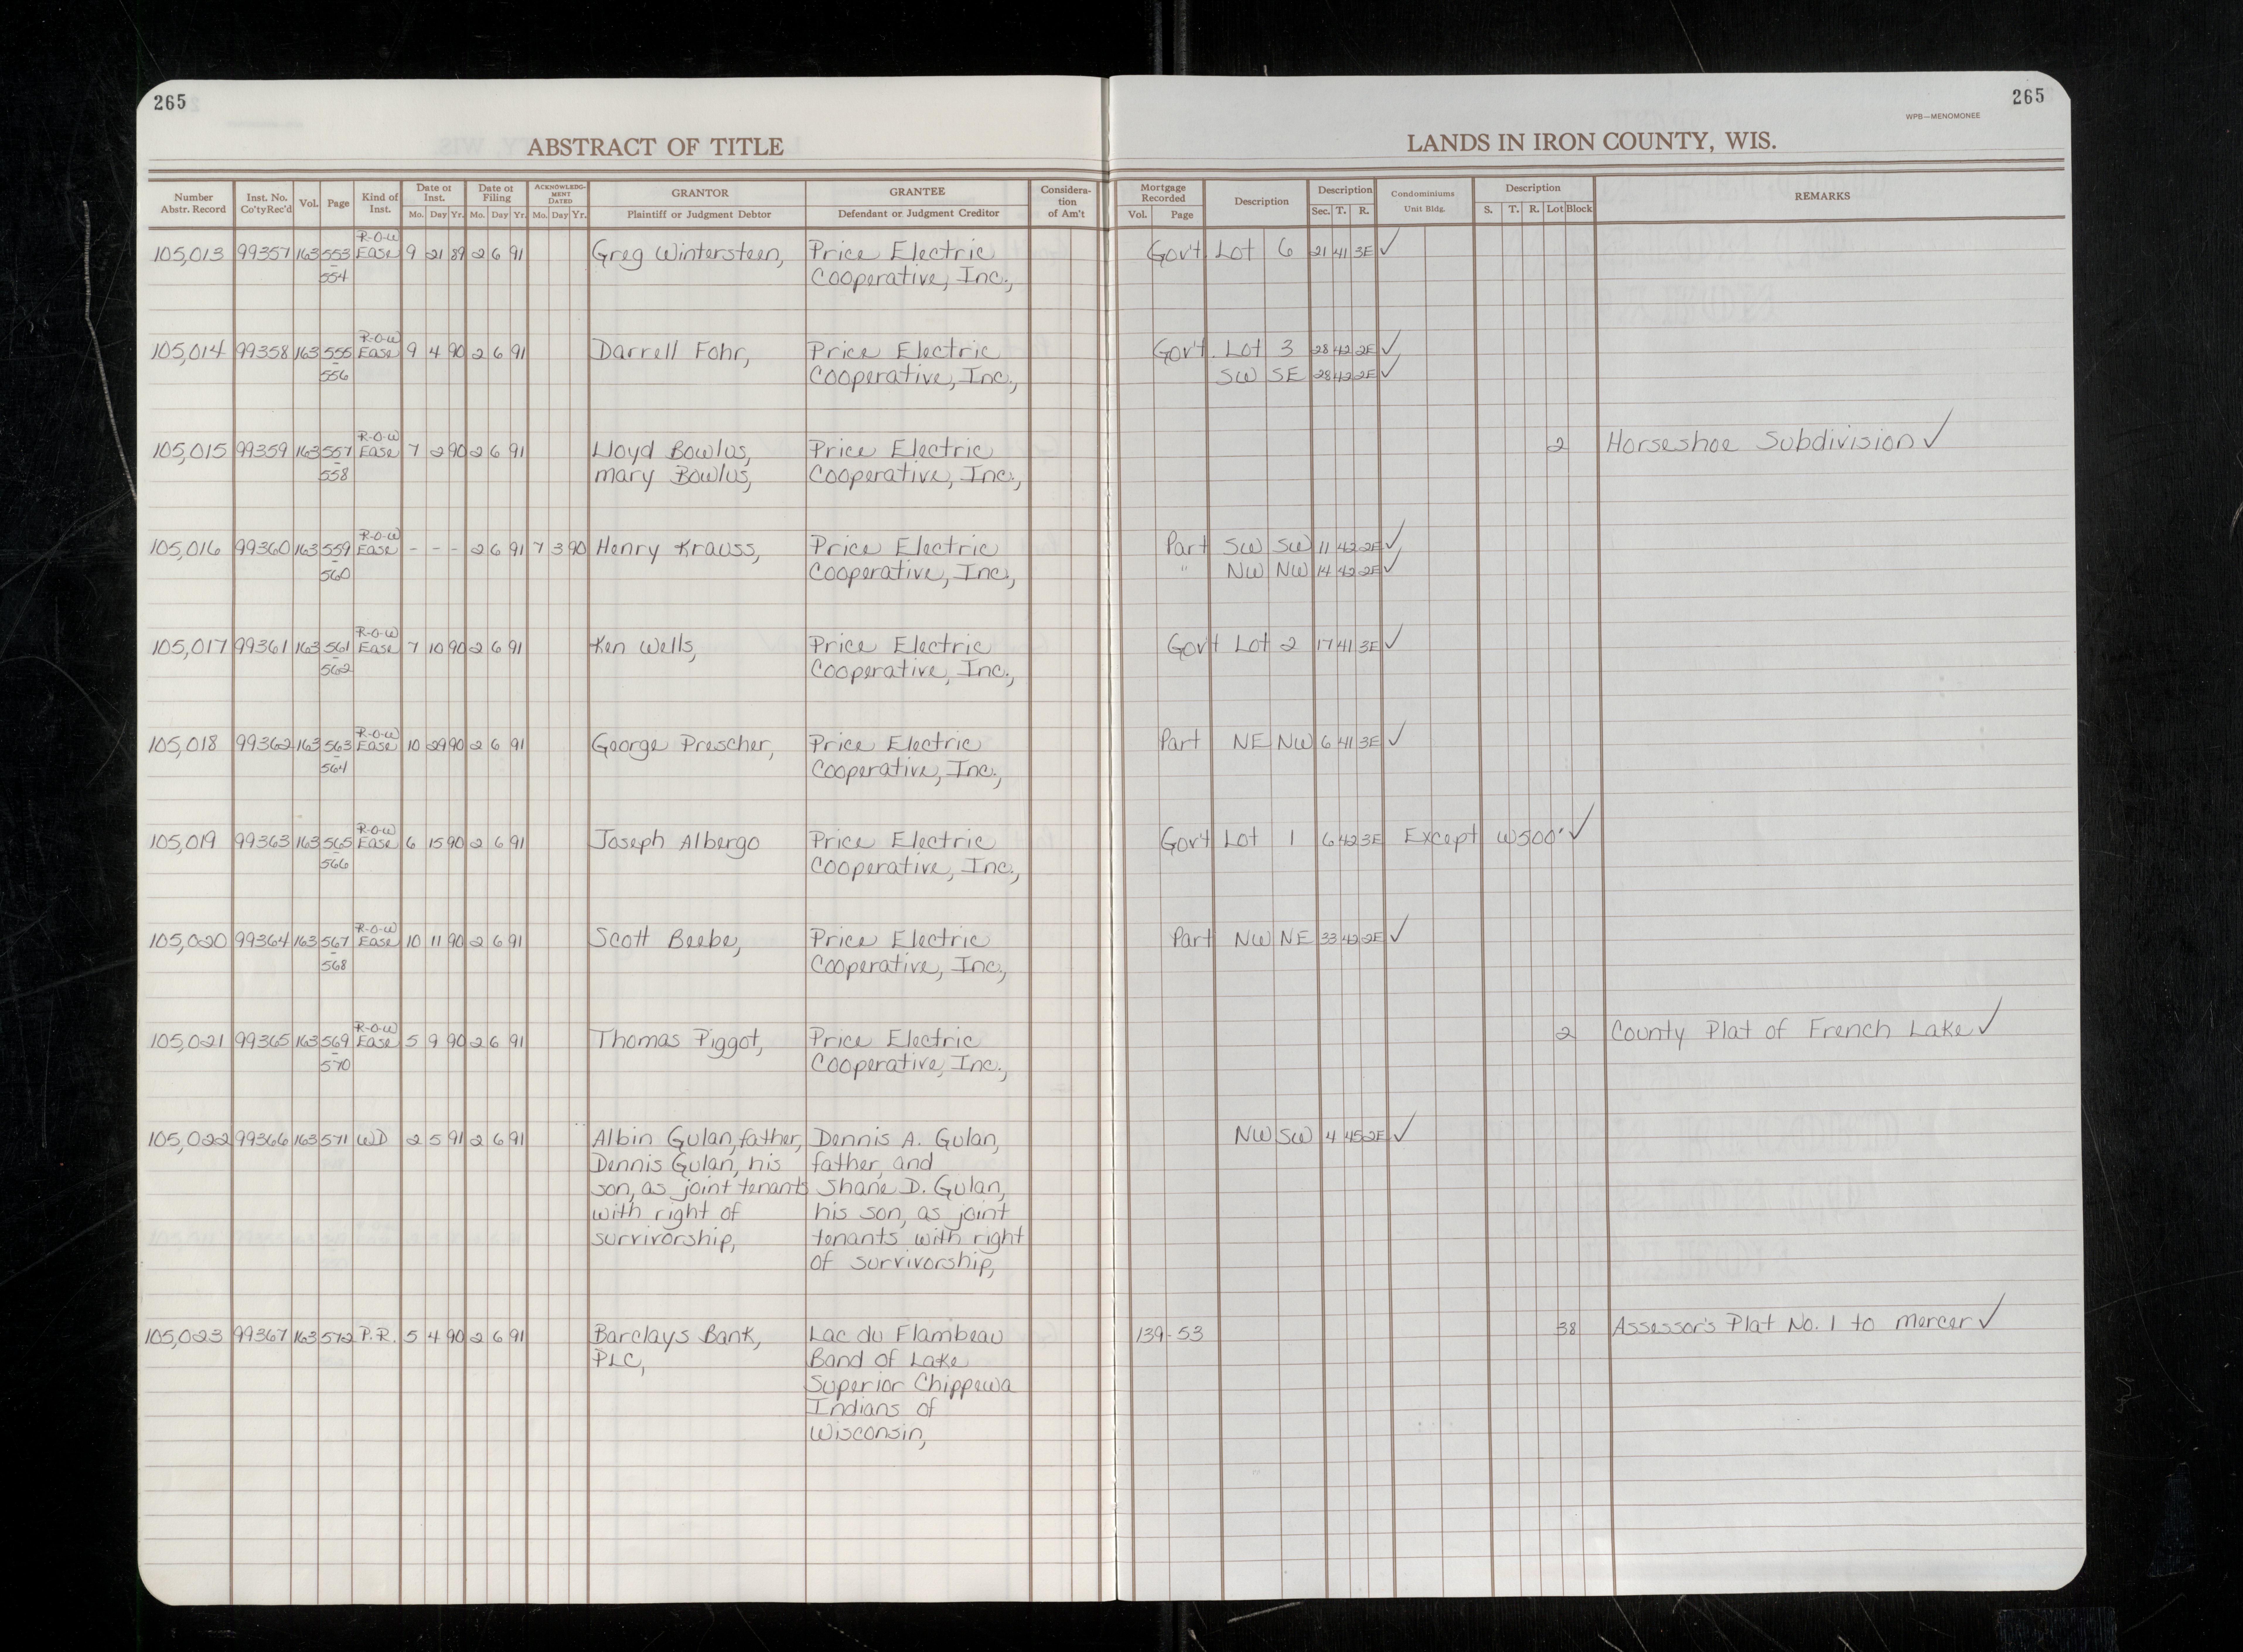 265
265
WPB—MENOMONEE
ABSTRACT OF TITLE
LANDS IN IRON COUNTY, WIS.
Number Abstr. Record Inst. No. Co'ty Rec'd Vol. Page Kind of Inst. Date of Inst. Mo. Day Yr. Date of Filing Mo. Day Yr. ACKNOWLEDGMENT DATED Mo. Day Yr. GRANTOR Plaintiff or Judgment Debtor GRANTEE Defendant or Judgment Creditor Consideration of Am't Mortgage Recorded Vol. Page Description Description Sec. T. R. Condominiums Unit Bldg. Description S. T. R. Lot Block REMARKS
R-O-W
105,013 99357 163 553 Ease 9 21 89 2 6 91 Greg Wintersteen, Price Electric Gov't Lot 6 21 41 3E ✓
- 554 Cooperative, Inc.,
R-O-W
105,014 99358 163 555 Ease 9 4 90 2 6 91 Darrell Fohr, Price Electric Gov't Lot 3 28 42 2E ✓
- 556 Cooperative, Inc., SW SE 28 42 2E ✓
R-O-W
105,015 99359 163 557 Ease 7 2 90 2 6 91 Lloyd Bowlus, Price Electric 2 Horseshoe Subdivision ✓
- 558 Mary Bowlus, Cooperative, Inc.,
R-O-W
105,016 99360 163 559 Ease - - - 2 6 91 7 3 90 Henry Krauss, Price Electric Part SW SW 11 42 2E ✓
- 560 Cooperative, Inc., " NW NW 14 42 2E ✓
R-O-W
105,017 99361 163 561 Ease 7 10 90 2 6 91 Ken Wells, Price Electric Gov't Lot 2 17 41 3E ✓
- 562 Cooperative, Inc.,
R-O-W
105,018 99362 163 563 Ease 10 29 90 2 6 91 George Prescher, Price Electric Part NE NW 6 41 3E ✓
- 564 Cooperative, Inc.,
R-O-W
105,019 99363 163 565 Ease 6 15 90 2 6 91 Joseph Albergo Price Electric Gov't Lot 1 6 42 3E Except W500' ✓
- 566 Cooperative, Inc.,
R-O-W
105,020 99364 163 567 Ease 10 11 90 2 6 91 Scott Beebe, Price Electric Part NW NE 33 42 2E ✓
- 568 Cooperative, Inc.,
R-O-W
105,021 99365 163 569 Ease 5 9 90 2 6 91 Thomas Piggot, Price Electric 2 County Plat of French Lake ✓
- 570 Cooperative, Inc.,
105,022 99366 163 571 WD 2 5 91 2 6 91 Albin Gulan, father, Dennis A. Gulan, NW SW 4 45 2E ✓
Dennis Gulan, his father, and
son, as joint tenants Shane D. Gulan,
with right of his son, as joint
survivorship, tenants with right
of survivorship,
105,023 99367 163 572 P.R. 5 4 90 2 6 91 Barclays Bank, Lac du Flambeau 139-53 38 Assessor's Plat No. 1 to Mercer ✓
PLC, Band of Lake
Superior Chippewa
Indians of
Wisconsin,